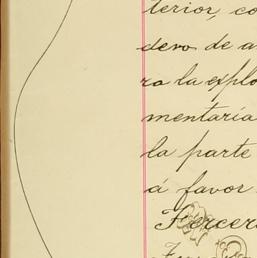 terior, co
devo de a
ra la explo
mentaria
la parte
á favor
Tercer